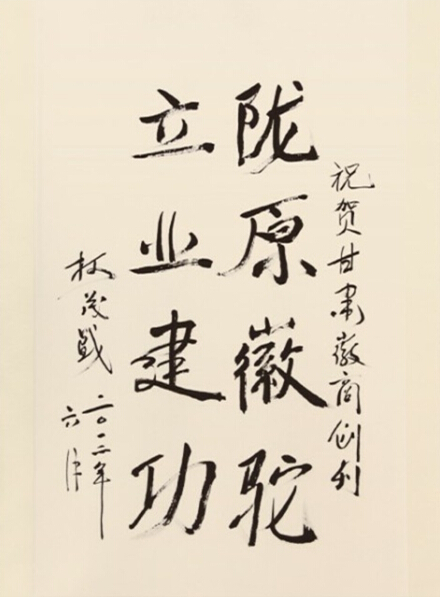 祝贺甘肃徽商创刊
陇原徽驼
立业建功
柯茂盛
二〇一二年
六月